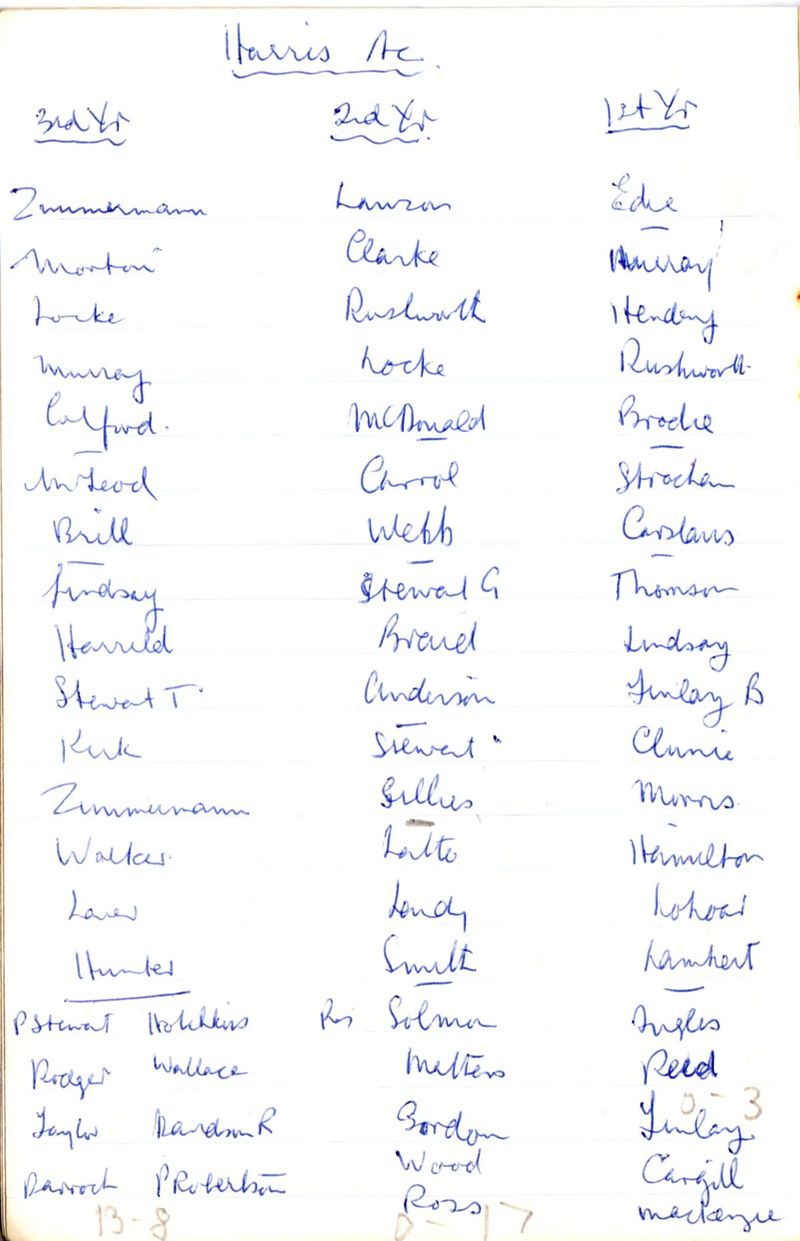 Harris Ac.
3rd Yr 2nd Yr. 1st Yr
Zimmermann Lawson Edie
Morton Clarke Murray
Locke Rushworth Hendry
Murray Locke Rushworth
McDonald Brodie
McLeod Carrol Strachan
Brill Webb
Lindsay Stewart G Thomson
Harrild Lindsay
Stewart T Anderson Finlay B
Kirk Stewart Clunie
Zimmermann Gillies Morris
Walker Latto Hamilton
Hunter Smith Lambert
P Stewart Hotchkiss Solmon Ingles
Rodger Wallace Matters Reed
0 - 3
Taylor Davidson R Gordon Finlay
Darroch P Robertson Wood Cargill
13-8 0 - 17 Ross Mackenzie